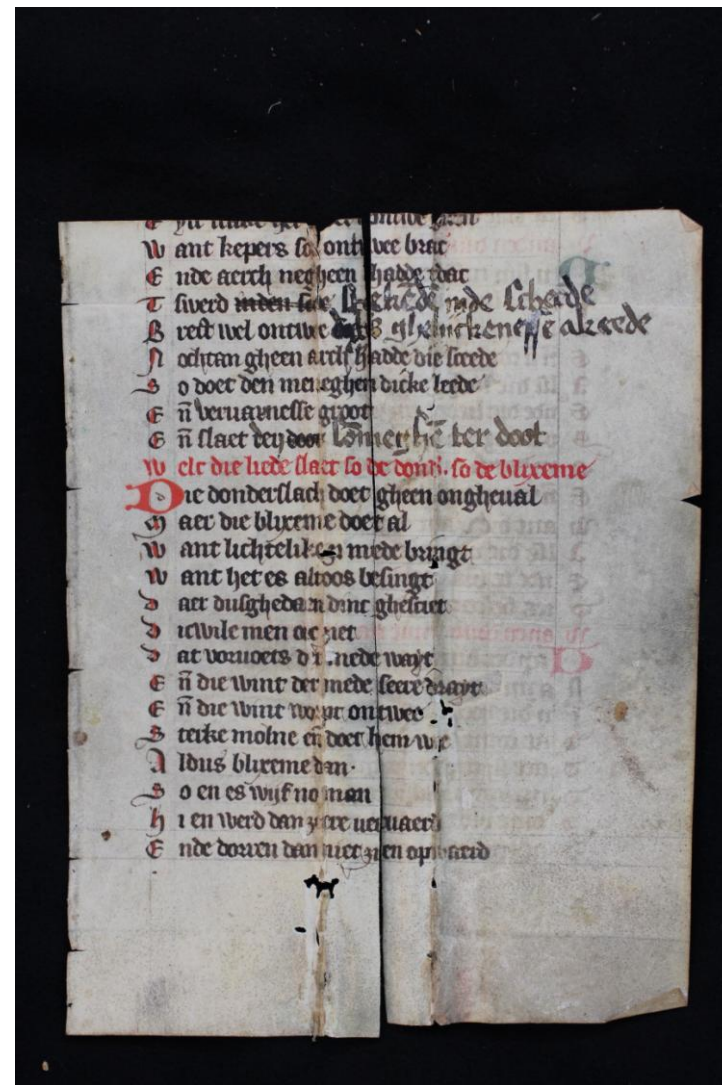 W ant kepers so ontwee brac
E nde aerch negheen hadde dac
T swerd inden sce schende inde scheide
B reft wel ontwee
N ochtan gheen arch hadde die sceede
S o doet den meneghen dicke leede
E n̄ veruarnesse groot
E n̄ slaet den door ter doot
W elc die liede slaet so de dond̾. so de blixeme
D ie donderslach doet gheen ongheual
M aer die blixeme doet al
W ant lichteliken mede bringt
W ant het es altoos besingt
D aer dusghedaen dinc ghesciet
D icwile men oec ziet
D at voruoets mede wayt
E n̄ die wint der mede seere drayt
E n̄ die wint worpt ontwee
S terke molne en̄ doet hem wee
A ldus blixeme dan.
S o en es wijf no man
H i en werd dan zeere veruaerd
E nde dorren dan niet zien opwaerd